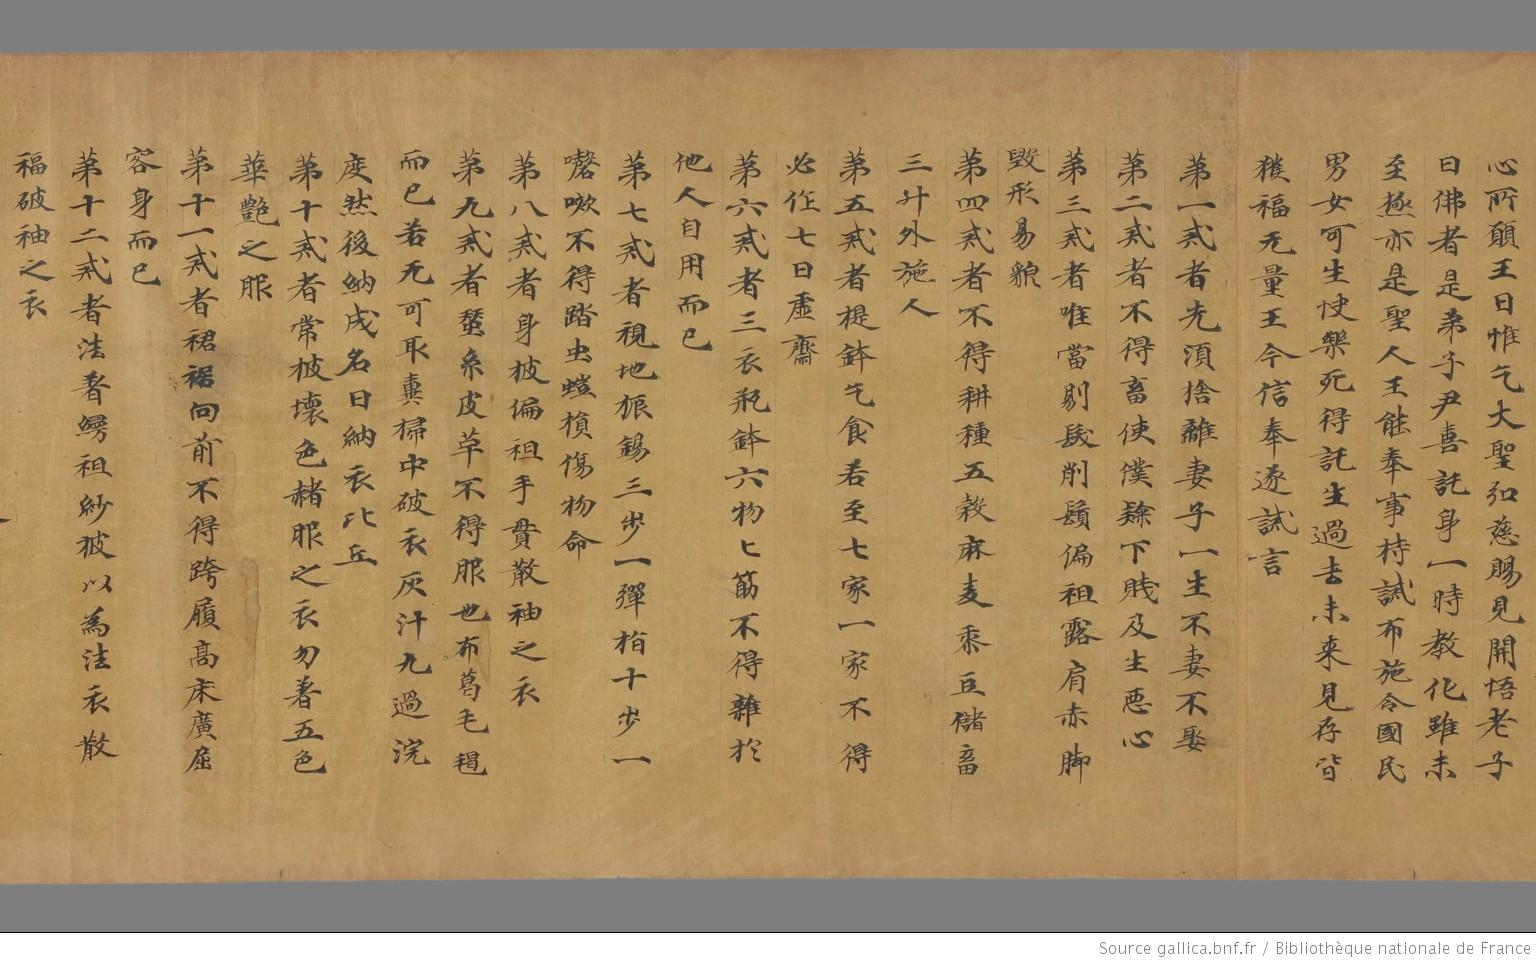 心所願王曰惟乞大聖弘慈賜見開悟老子
曰佛者是弟子尹喜託身一時教化雖未
至極亦是聖人王能奉事持誡布施令國民
男女可生快樂死得託生過去未來見存皆
獲福无量王今信奉遂誡言
第一貳者先須捨離妻子一生不妻不娶
第二貳者不得畜使僕隸下賤及生惡心
第三貳者唯當剔髮削鬚偏袒露肩赤脚
毀形易貌
第四貳者不得耕種五穀麻麦黍豆儲畜
三升外施人
第五貳者提鉢乞食若至七家一家不得
必作七日虛齋
第六貳者三衣瓶鉢六物匕筯不得雜於
他人自用而已
第七貳者視地振錫三步一彈指十步一
謦嗽不得踏虫螘損傷物命
第八貳者身披偏袒手貫散袖之衣
第九貳者蠶糸皮草不得服也布葛毛毼
而已若无可取糞掃中破衣灰汁九過浣
度然後納成名曰納衣比丘
第十貳者常披壞色赭服之衣勿著五色
華艷之服
第十一貳者裙裾向前不得跨履高床廣屈
容身而已
第十二貳者法著鰐袒紗披以為法衣散
福破袖之衣
Source gallica.bnf.fr / Bibliothèque nationale de France